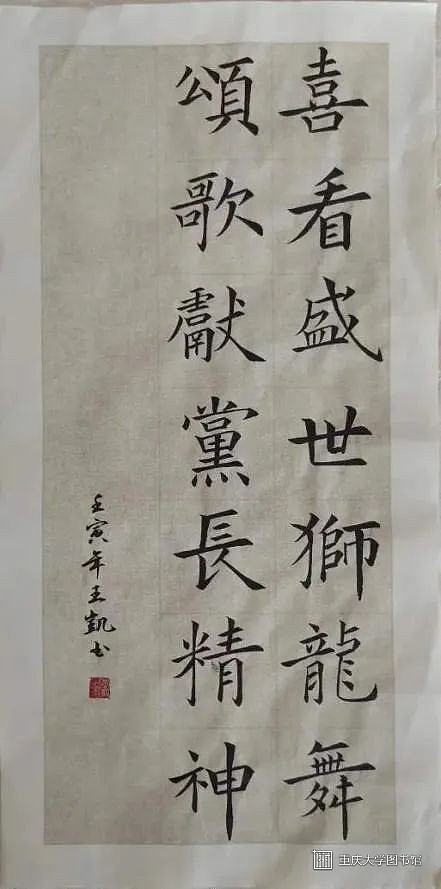 喜看盛世獅龍舞
頌歌獻黨長精神
壬寅年王凱书
重庆大学图书馆